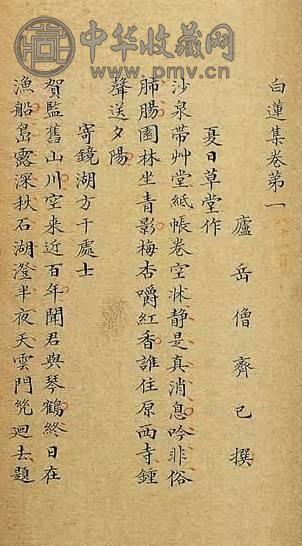 中华收藏网
www.pmv.cn
白蓮集卷第一
廬岳僧齊己撰
夏日草堂作
沙泉帶艸堂紙帳卷空牀静是真消息吟非俗
肺腸園林坐青影梅杏嚼紅香誰住原西寺鍾
聲送夕陽
寄鏡湖方干處士
賀監舊山川空来近百年聞君與琴鶴終日在
漁船島露深秋石湖澄半夜天雲門幾迴去題